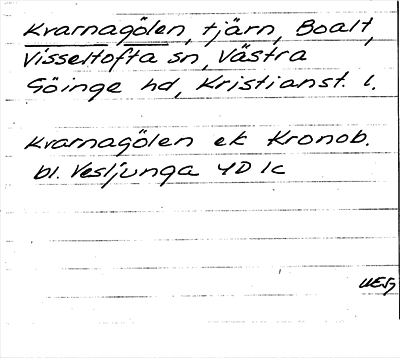 Kvarnagölen, tjärn, Boalt,
Visseltofta sn, Västra
Göinge hd, Kristianst. l.
Kvarnagölen ek Kronob.
bl. Vesljunga 4D 1c